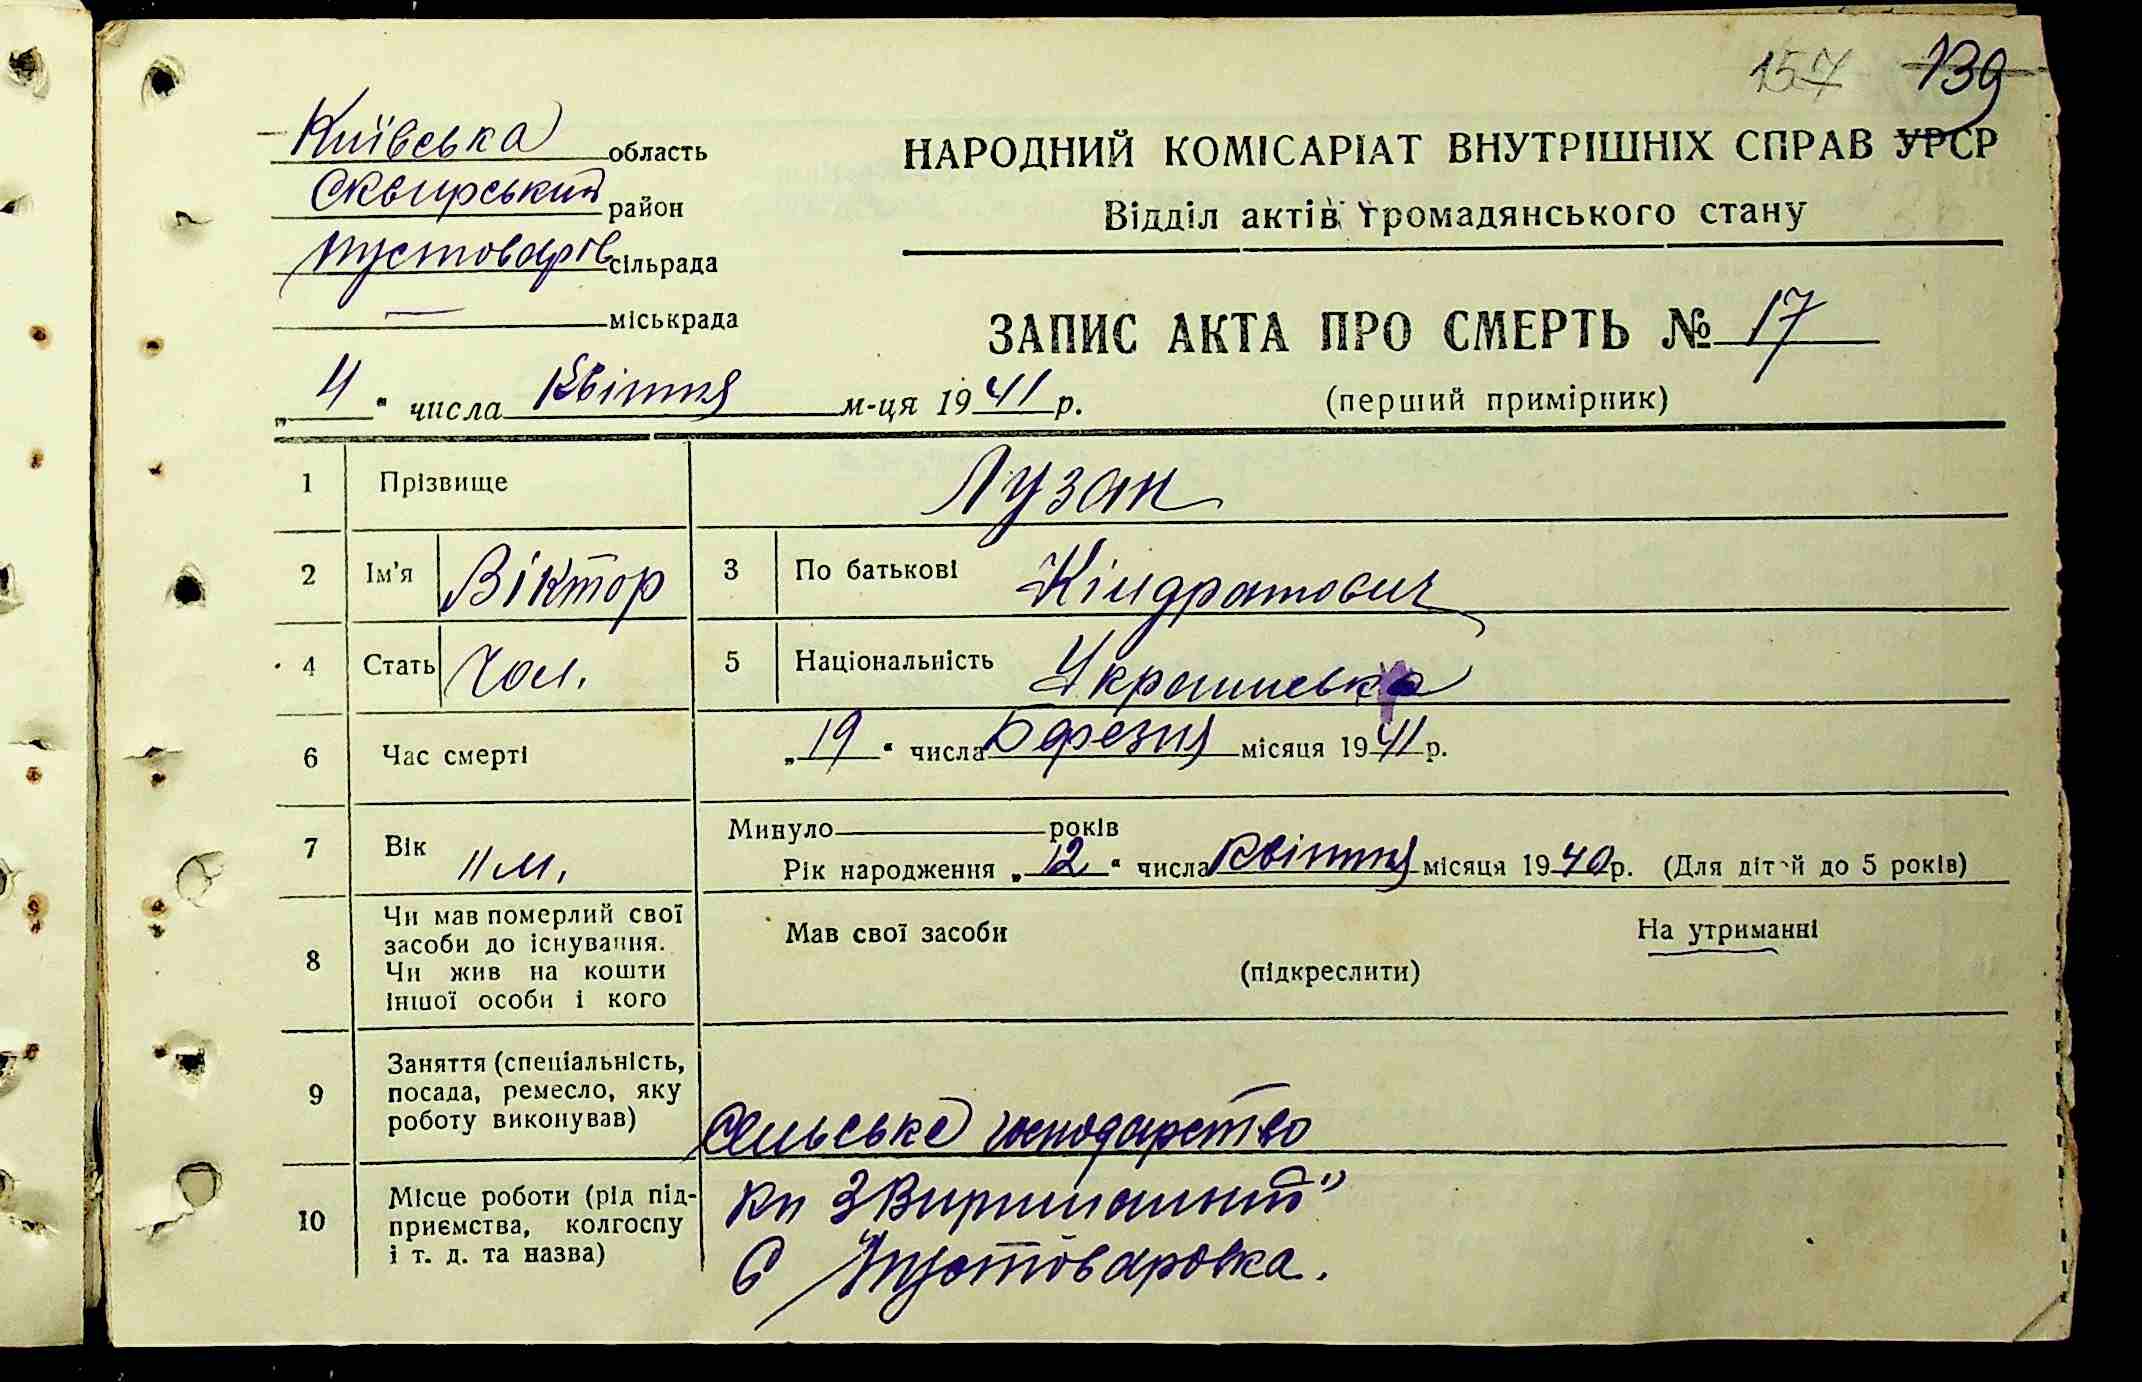 157 139
Київська область
Сквирський район
Пустоварів сільрада
— міськрада
НАРОДНИЙ КОМІСАРІАТ ВНУТРІШНІХ СПРАВ УРСР
Відділ актів громадянського стану
ЗАПИС АКТА ПРО СМЕРТЬ № 17
(перший примірник)
„4“ числа Квітня м-ця 1941 р.
1 Прізвище Лузан
2 Ім'я Віктор 3 По батькові Кіндратович
4 Стать Чол. 5 Національність Українська
6 Час смерті „19“ числа Березня місяця 1941 р.
7 Вік 11 м. Минуло років
Рік народження „12“ числа Квітня місяця 1940 р. (Для дітей до 5 років)
8 Чи мав померлий свої засоби до існування. Чи жив на кошти іншої особи і кого
Мав свої засоби На утриманні
(підкреслити)
9 Заняття (спеціальність, посада, ремесло, яку роботу виконував)
Сельське господарство
10 Місце роботи (рід підприємства, колгоспу і т. д. та назва)
с Пустоваровка.